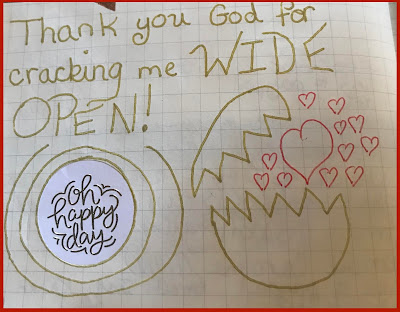 Thank you God for
cracking me WIDE
OPEN!
oh
happy
day